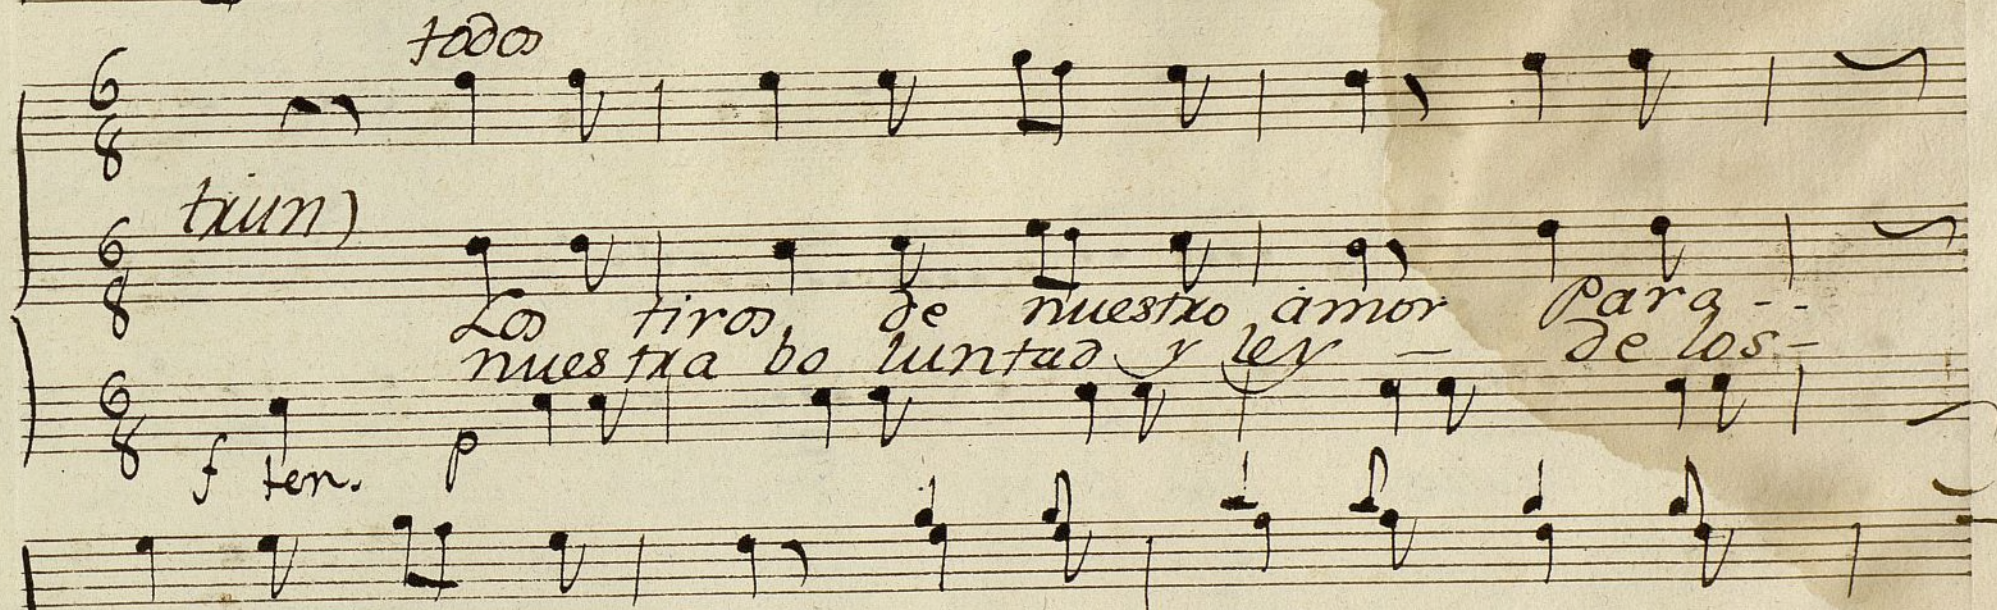 todos
triun)
Los tiros, de nuestro amor Para - -
nuestra bo luntad y ley — de los -
f ten. p